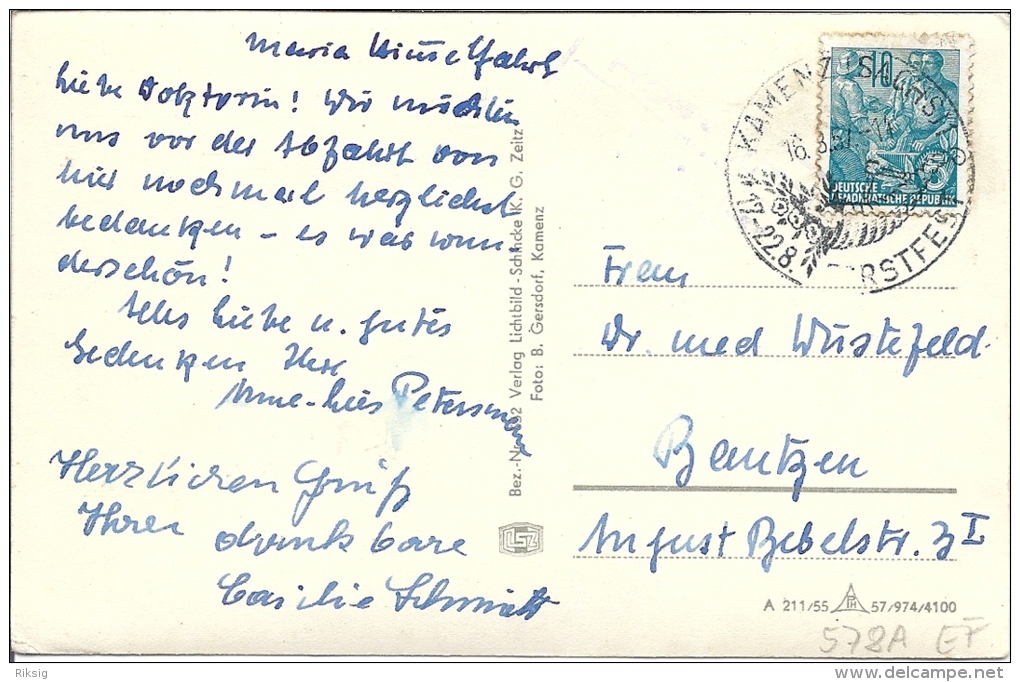 Maria Himmelfahrt
Liebe Doktorin! Wir möchten
uns vor der Abfahrt von
hier nochmal herzlichst
bedanken – es war wun-
derschön!
Alles Liebe u. gutes
Gedenken Ihre
Anne-Lies Petersmann
Herzlichen Gruß
Ihrer dankbare
Cäsilie Schmitt
Bez.-Nr. 392 Verlag Lichtbild-Schincke K. G. Zeitz
Foto: B. Gersdorf, Kamenz
LSZ
KAMENZ (SACHS)
17.-22.8. FORSTFEST
10
DEUTSCHE
DEMOKRATISCHE REPUBLIK
Frau
Dr. med Wüstefeld
Bautzen
August Bebelstr. 3 I
A 211/55 57/974/4100
578A EF
Riksig
www.delcampe.net